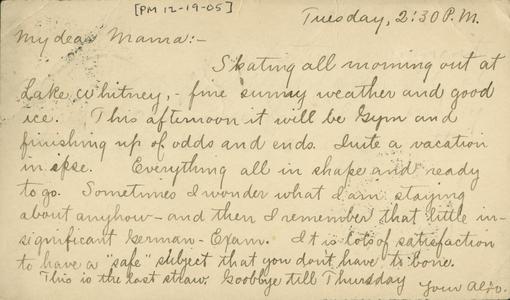 [PM 12-19-05]
Tuesday, 2:30 P.M.
My dear Mama:-
Skating all morning out at
Lake Whitney, - fine sunny weather and good
ice. This afternoon it will be Gym and
finishing up of odds and ends. Quite a vacation
in spse. Everything all in shape and ready
to go. Sometimes I wonder what I am staying
about anyhow - and then I remember that little in-
significant German - Exam. It is lots of satisfaction
to have a "safe" subject that you don't have to bone.
This is the last straw. Goodbye till Thursday
Your Aldo.